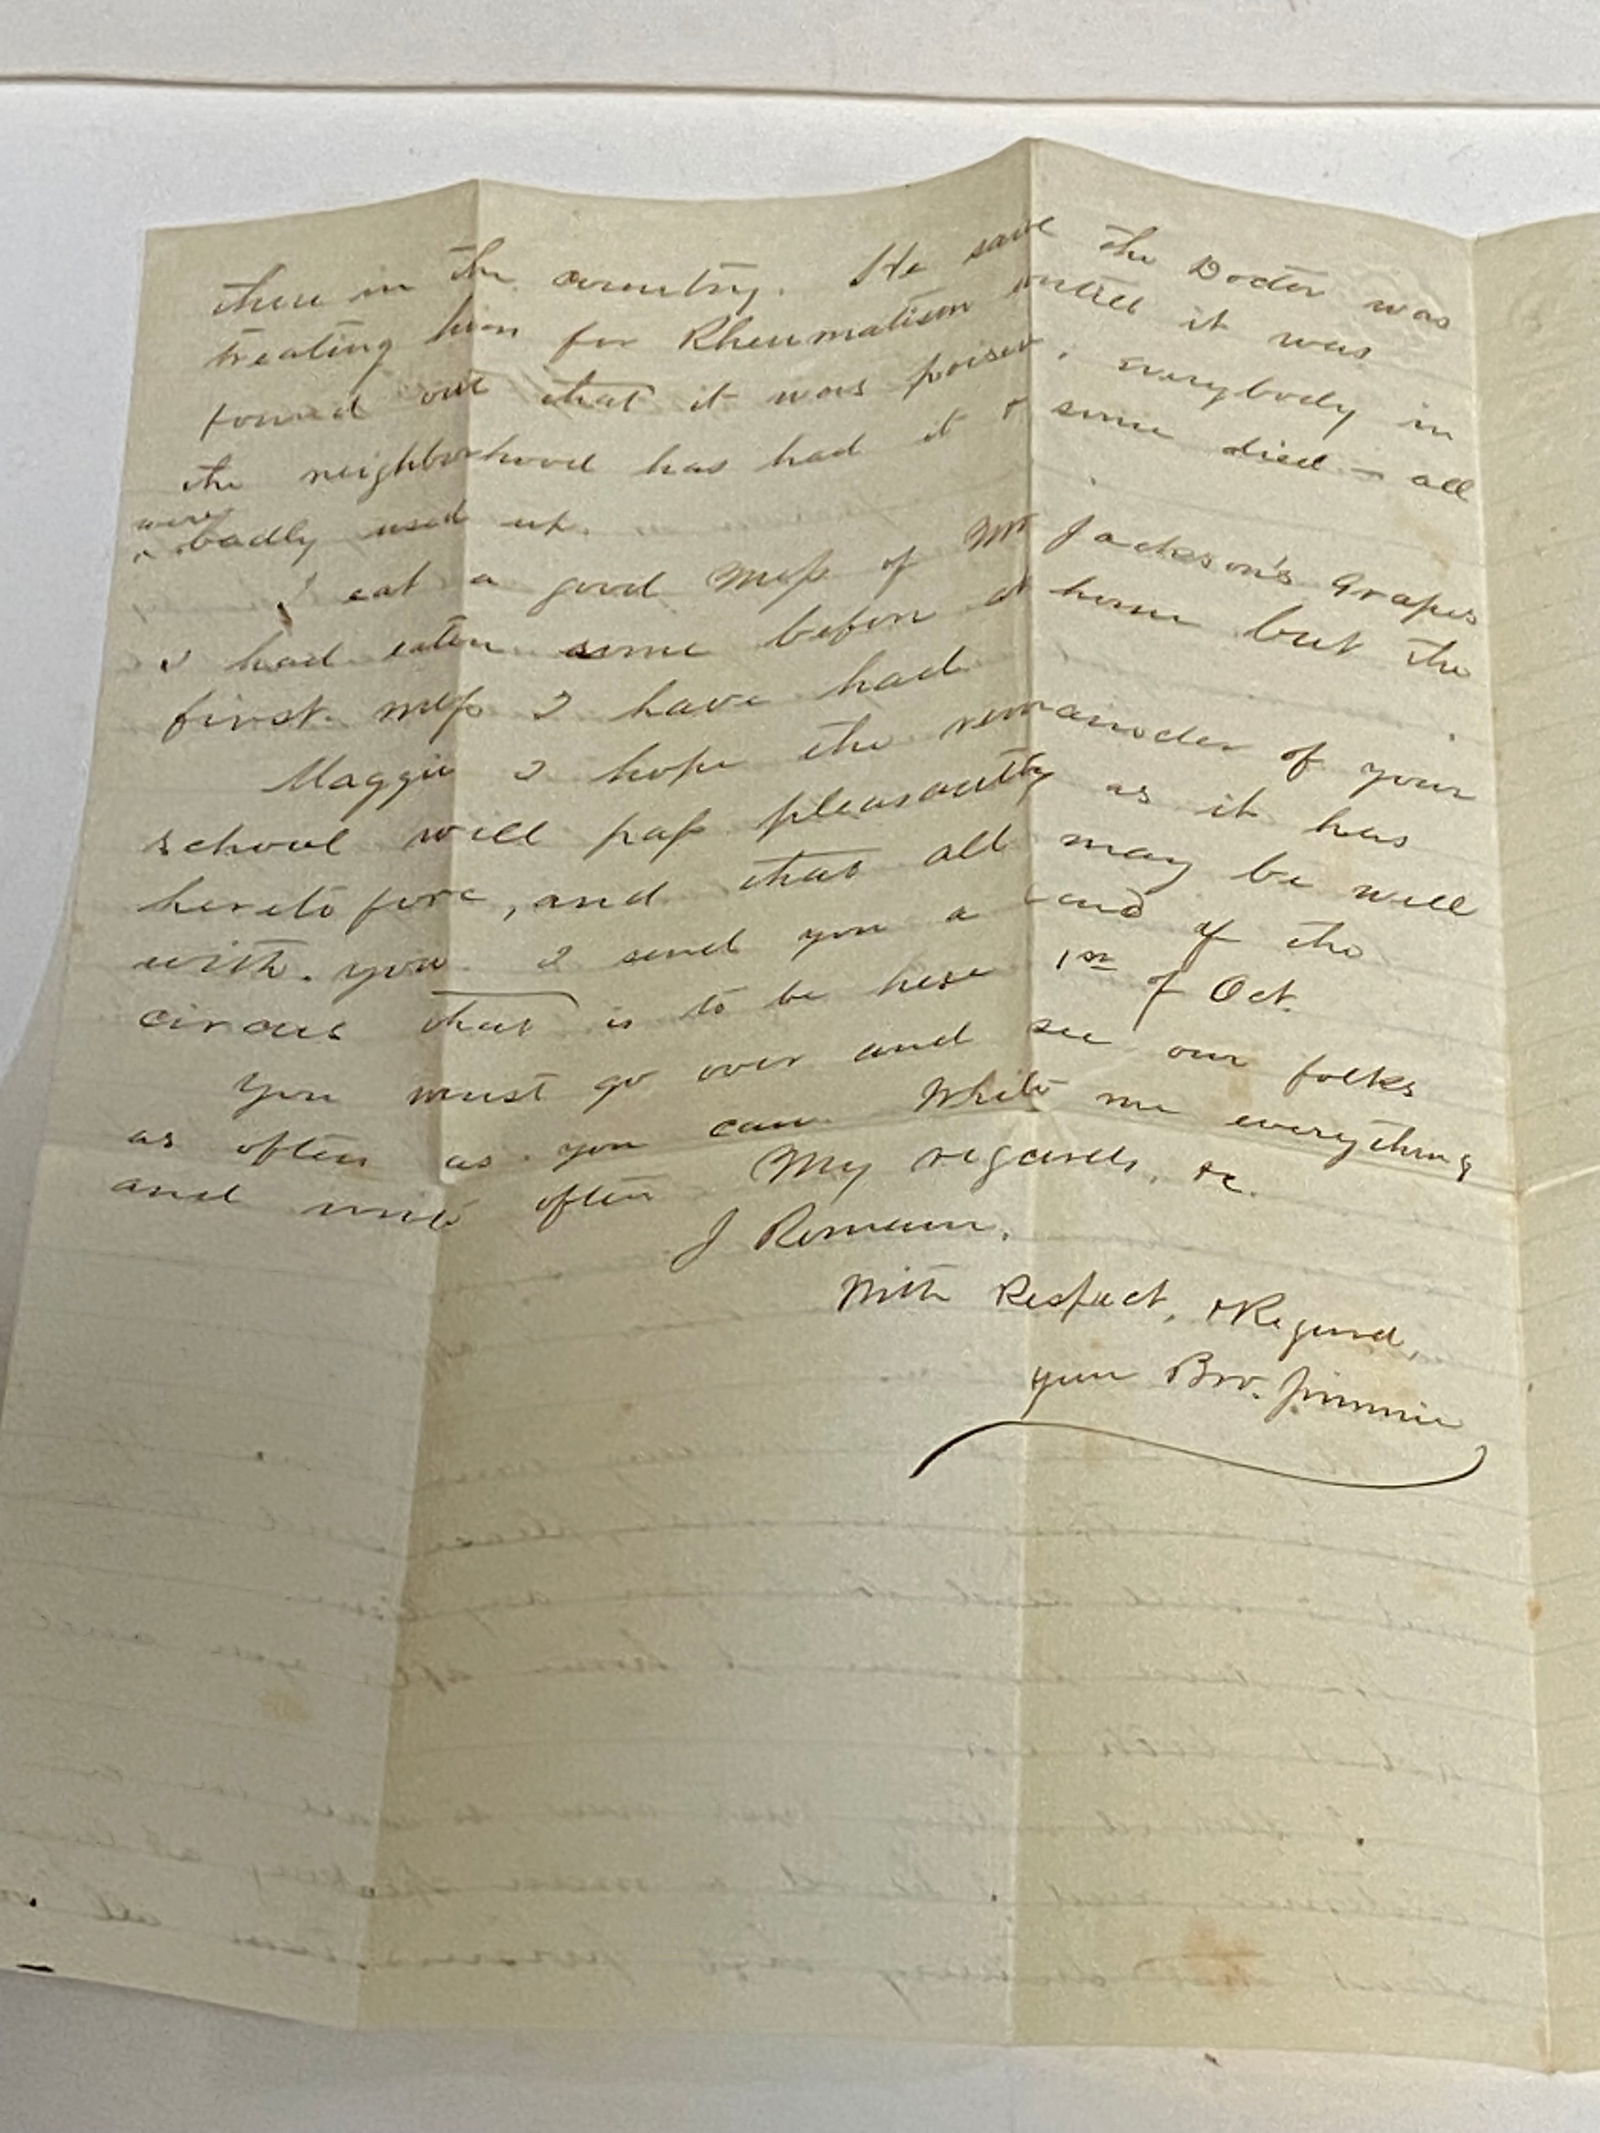 there in the country. He said the Doctor was
treating him for Rheumatism untill it was
found out that it was poison, everybody in
the neighborhood has had it & some died – all
were
^ badly used up.
I eat a good mess of Mr Jackson's Grapes
I had eaten some before at home but the
first mess I have had
Maggie I hope the remainder of your
school will pass pleasantly as it has
heretofore, and that all may be well
with you. I send you a card of the
circus that is to be here 1st of Oct.
You must go over and see our folks
as often as you can. Write me everything
and write often My regards, &c.
J Remain,
With Respect, & Regard,
your Bro. Jimmie